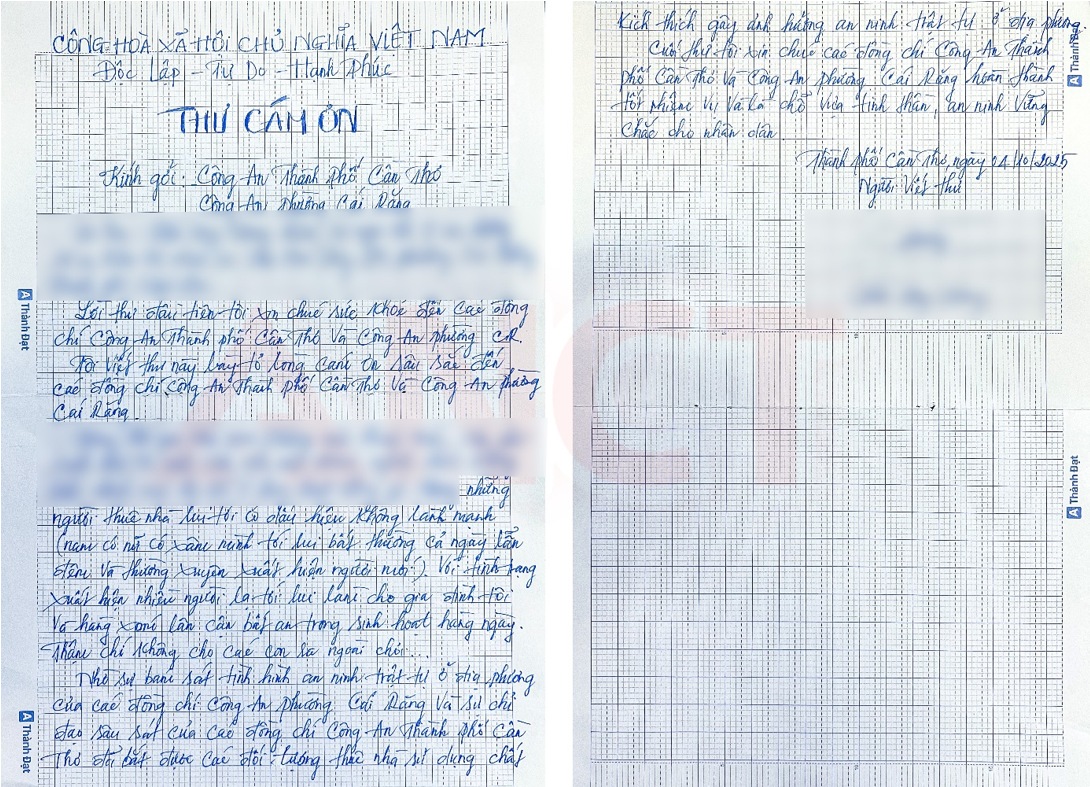 CÔNG HOÀ XÃ HỘI CHỦ NGHĨA VIỆT NAM
Độc Lập - Tự Do - Hạnh Phúc
THƯ CÁM ƠN
Kính gởi: Công An Thành phố Cần Thơ
Công An phường Cái Răng
Lời thư đầu tiên tôi xin chúc sức khỏe đến các đồng
chí Công An Thành phố Cần Thơ Và Công An phường CR.
Tôi viết thư này bày tỏ lòng cám ơn sâu sắc đến
các đồng chí Công An Thành phố Cần Thơ Và Công An phường
Cái Răng
những
người thuê nhà lui tới có dấu hiệu không lành mạnh
(nam có nữ có xăm mình tới lui bất thường cả ngày lẫn
đêm và thường xuyên xuất hiện người mới). Với tình trạng
xuất hiện nhiều người lạ tới lui làm cho gia đình tôi
Và hàng xóm lân cận bất an trong sinh hoạt hàng ngày.
Thậm chí không cho các con ra ngoài chơi...
Nhờ sự bám sát tình hình an ninh trật tự ở địa phương
của các đồng chí Công An phường Cái Răng Và sự chỉ
đạo sâu sát của các đồng chí Công An Thành phố Cần
Thơ đã bắt được các đối tượng thuê nhà sử dụng chất
Kích thích gây ảnh hưởng an ninh trật tự ở địa phương.
Cuối thư tôi xin chúc các đồng chí Công An Thành
phố Cần Thơ Và Công An phường Cái Răng hoàn thành
tốt nhiệm vụ Và là chỗ vựa tinh thần, an ninh vững
Chắc cho nhân dân
Thành phố Cần Thơ, ngày 04/10/2025
Người Viết thư
Thành Đạt
Thành Đạt
Thành Đạt
Thành Đạt
ANCT